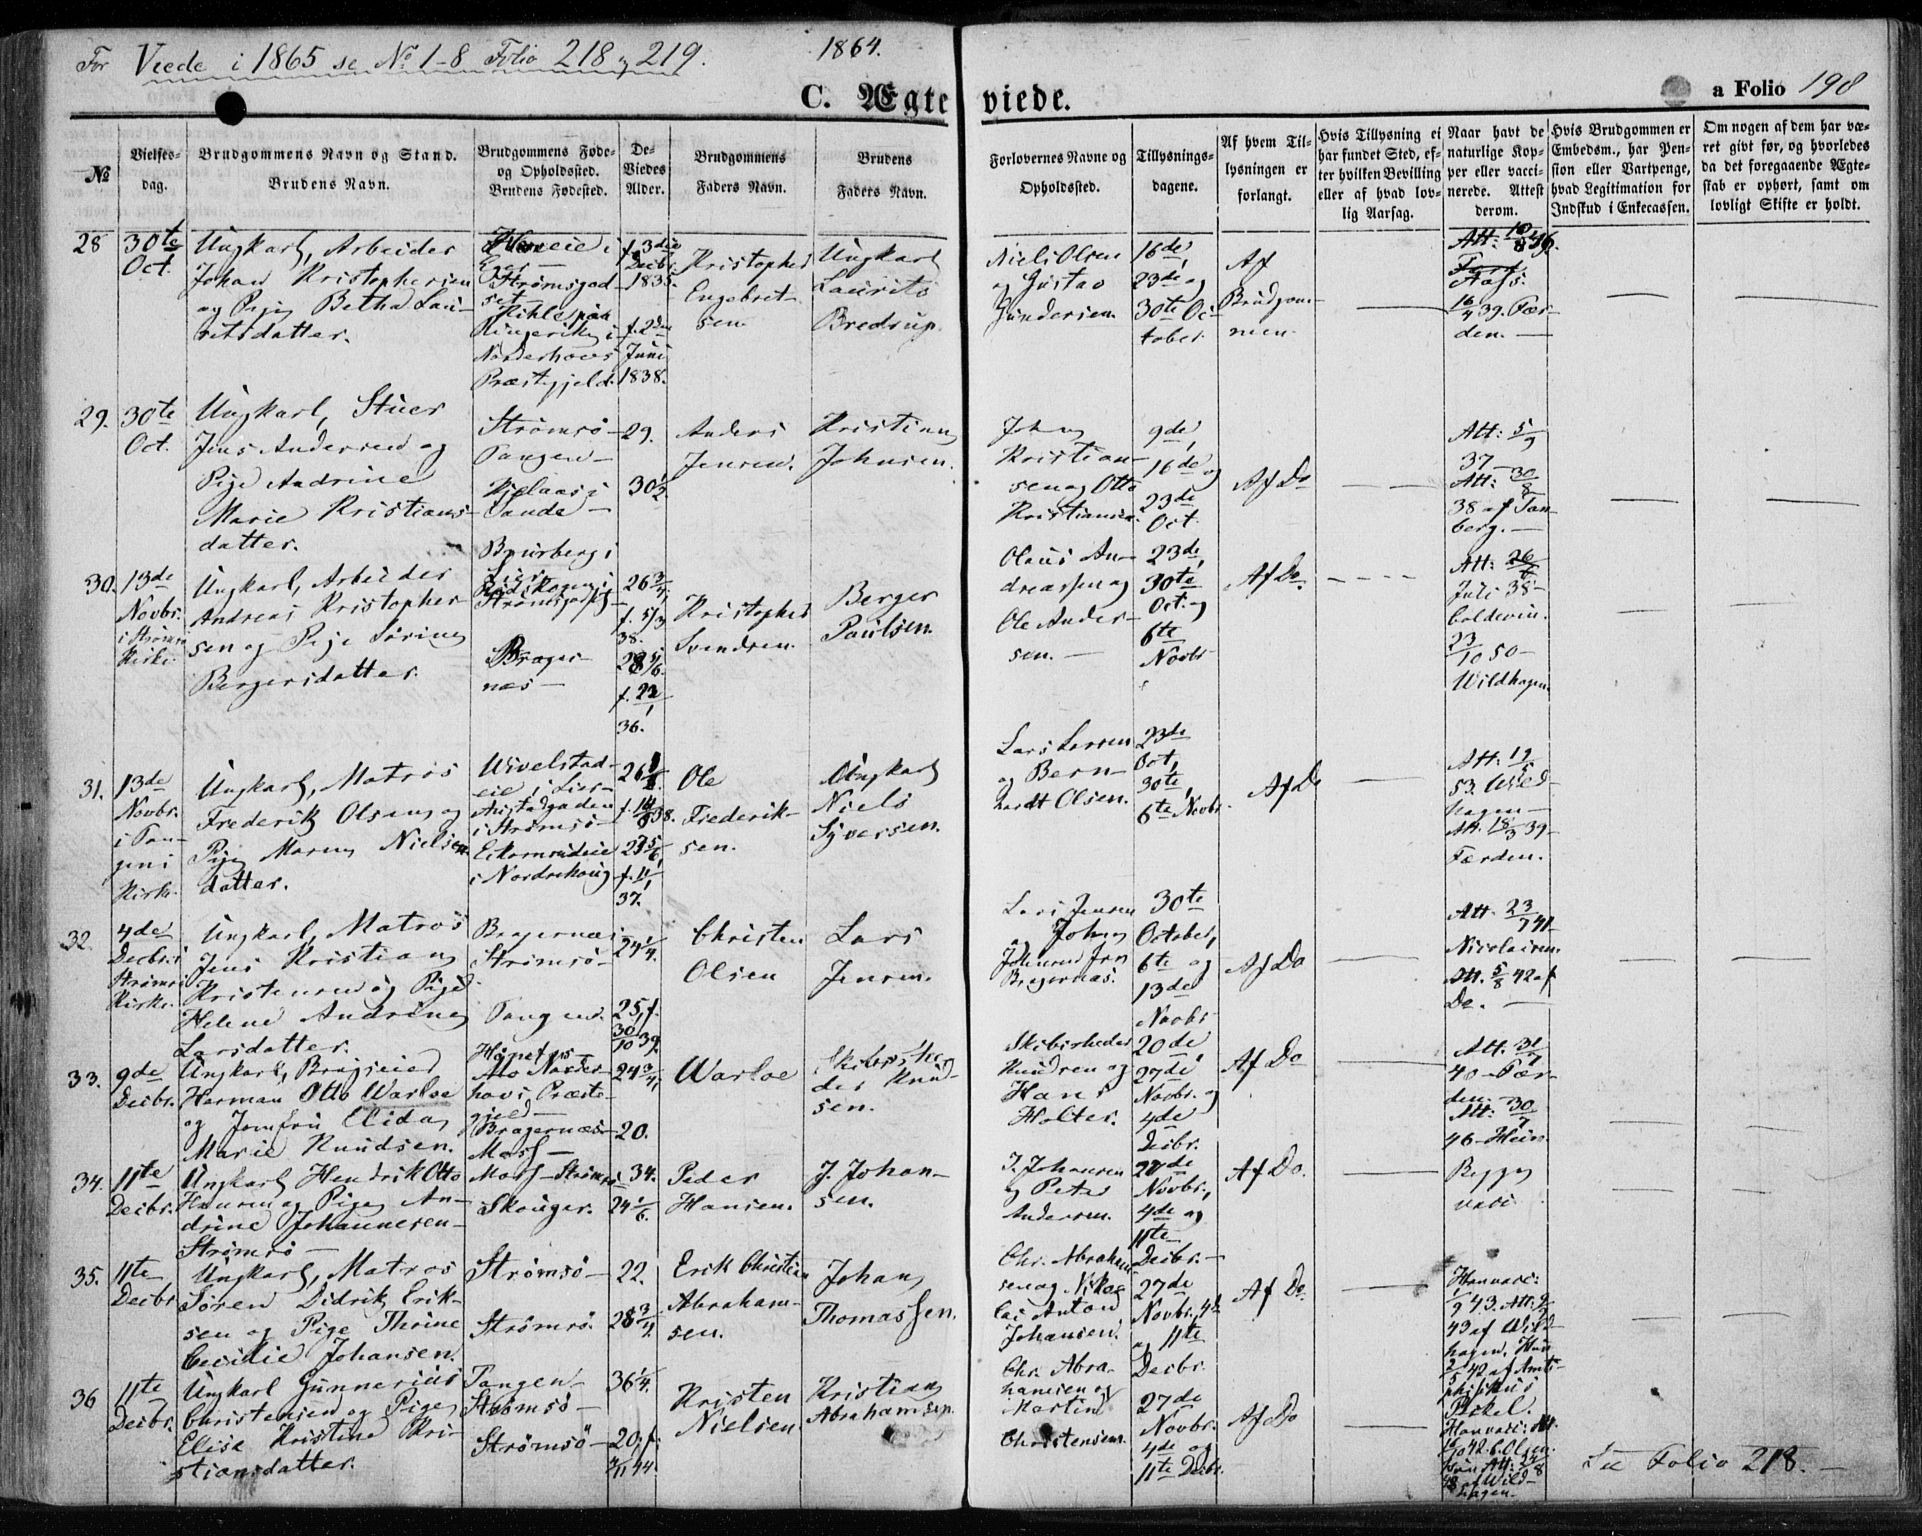 For Viede i 1865 se No 1-8 Folio 218 og 219.
1864.
C. Ægteviede.
a Folio 198
No
Vielses-
dag.
Brudgommens Navn og Stand.
Brudens Navn.
Brudgommens Føde-
og Opholdssted.
Brudens Fødested.
De
Viedes
Alder.
Brudgommens
Faders Navn.
Brudens
Faders Navn.
Forlovernes Navne og
Opholdssted.
Tillysnings-
dagene.
Af hvem Til-
lysningen er
forlangt.
Hvis Tillysning ei
har fundet Sted, ef-
ter hvilken Bevilling
eller af hvad lov-
lig Aarsag.
Naar havt de
naturlige Kop-
per eller vacci-
nerede. Attest
derom.
Hvis Brudgommen er
Embedsm., har Pen-
sion eller Vartpenge,
hvad Legitimation for
Indskud i Enkecassen.
Om nogen af dem har væ-
ret givt før, og hvorledes
da det foregaaende Ægte-
skab er ophørt, samt om
lovligt Skifte er holdt.
28
30te
Oct.
Ungkarl, Arbeider
Johan Kristophersen
og Pige Betha Lau-
ritsdatter.
Strømsgod-
set
Ringerike i
Norderhovs
Præstegjeld.
f. 3die
Decbr.
1835.
f. 2den
Juni
1838.
Kristopher
Engebret-
sen.
Ungkarl
Laurits
Bredrup.
Niels Olsen
og Gustav
Gundersen.
16de,
23de og
30te Oc-
tober.
Af
Brudgom-
men.
16/4 39. Fær-
den.
29.
30te
Oct.
Ungkarl, Stuer
Jens Andersen og
Pige Andrine
Marie Kristians-
datter.
Strømsø
Tangen
Sande
29.
30½.
Anders
Jensen.
Kristian
Johnsen.
John
Kristian-
sen og Otto
Kristiansen.
9de,
16de og
23de
Oct.
Af Do
Att: 5/9
37
Att: 30/8
38 af Tan-
berg.
30.
13de
Novbr.
i Strømsø
Kirke.
Ungkarl, Arbeider
Andreas Kristopher-
sen og Pige Sørine
Bergersdatter.
Strømsgodset
Brager-
næs
26¾,
f. 5/3
38.
28 5/6.
f. 22/1
36.
Kristopher
Svendsen.
Berger
Paulsen.
Olaus An-
dreassen og
Ole Ander-
sen.
23de,
30te
Oct. og
6te
Novbr
Af Do.
Juli 38
Coldevin.
23/10 50
Wildhagen.
31.
13de
Novbr.
i Tan-
gens
Kirke.
Ungkarl, Matros
Frederik Olsen og
Pige Maren Nielsen
datter.
Uivelstad-
eie i Lier
Austadgaden
i Strømsø
i Nordrehoug
f. 14/8 38.
f. 11/1
37.
Ole
Frederik-
sen.
Ungkarl
Niels
Syversen.
Lars Larsen
og Bern-
hardt Olsen.
23de
Oct,
30te,
6te Novbr.
Af Do
53. Wild-
hagen
Att. 18/3 39
Færden.
32.
4de
Decbr. i
Strømsø
Kirke.
Ungkarl, Matros
Jens Kristian
Kristensen og Pige
Helene Andrine
Larsdatter.
Bragernæs
Strømsø
Tangen.
24¼.
25, f.
30/10 39.
Christen
Olsen
Lars
Jensen.
Lars Jensen
og John
Johnsen fra
Bragernæs.
30te
October,
6te og
13de
Novbr
Af Do
Att. 23/7 41
Nicolaisen.
Att. 5/8 42 af
Do.
33.
9de
Decbr.
Ungkarl, Brugseier
Herman Otto Warloe
og Jomfru Elida
Marie Knudsen.
Hønefos
Norder-
hovs Præste-
gjeld
Bragernæs
Moss
24¾,
20.
Warloe
Skibsrhe-
der Knud-
sen.
Skibsrheder
Knudsen og
Hans
Holter.
20de
27de
Novbr. og
4de
Decbr.
Af Do
Att: 31/7
40 Fær-
den.
Att: 30/7
46 Hein
34.
11te
Decbr.
Ungkarl Hendrik Otto
Hansen og Pige An-
drine Johannesen
Strømsø
Moss Strømsø
Skouger.
34.
24 1/6.
Peder
Hansen.
J. Johan-
sen.
J. Johansen
og Peter
Andersen.
27de
Novbr,
4de og
11te
Decbr.
Af Do.
Begge
vacc.
35.
11te
Decbr
Ungkarl, Matros
Søren Didrik Erik-
sen og Pige Thrine
Cecilie Johansen.
Strømsø
Strømsø.
22.
28¾.
Erik Christian
Abraham-
sen.
Johan
Thomassen.
Chr. Abraham
sen og Nikoe
lai Anton
Johansen.
27de
Novbr, 4de
og 11te
Decbr.
Af Do
Han vacc:
43 af Wild
hagen. Hun
42 af Amts-
phisikus
36
11te
Decbr.
Ungkarl Gunnerius
Christensen og Pige
Elise Kristine Kri-
stiansdatter.
Tangen
Strømsø
Strømsø
36¼.
20, f.
Kristen
Nielsen.
Kristian
Abrahamsen.
Chr. Abra-
hamsen og
Martin
Christensen.
27de
Novbr.
4de og
11te Decbr.
Af Do
Han vacc:
af Wild-
hagen.
Se Folio 218.